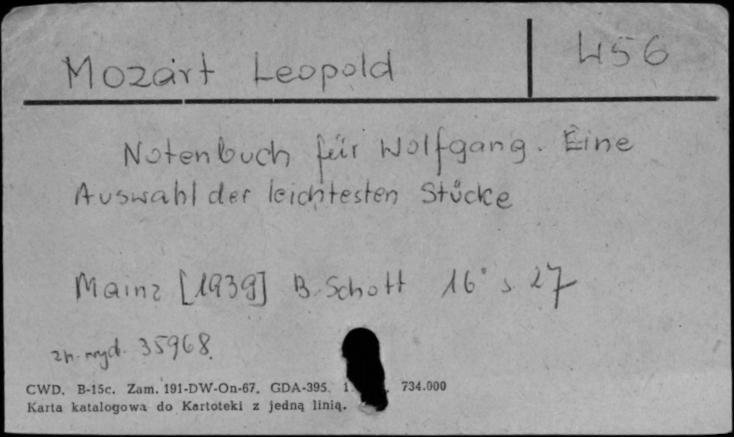 Mozart Leopold 456
Notenbuch für Wolfgang. Eine
Auswahl der leichtesten Stücke
Mainz [1939] B. Schott 16° s 27
zn. wyd. 35968.
CWD. B-15c. Zam. 191-DW-On-67. GDA-395. 1 734.000
Karta katalogowa do Kartoteki z jedną linią.